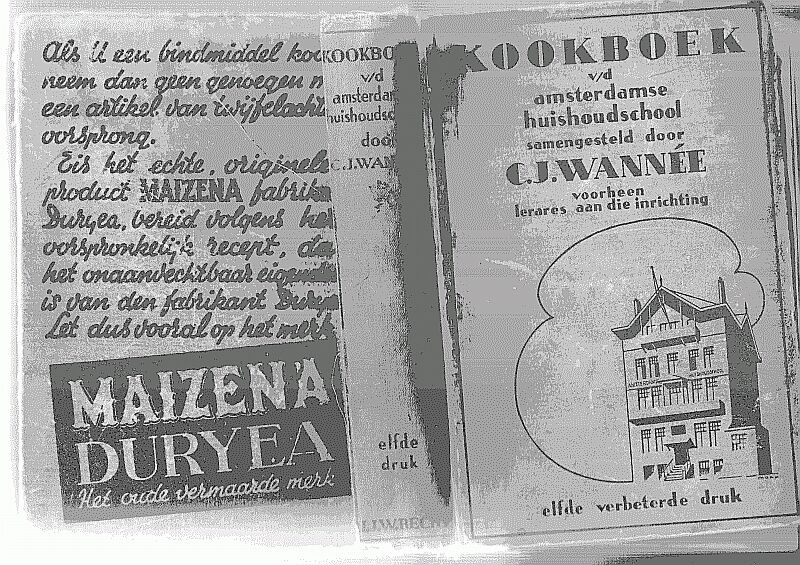 Als U een bindmiddel
neem dan geen genoegen
een artikel van
oorsprong.
Eis het echte, originele
product MAIZENA
Duryea, bereid volgens het
oorspronkelijk recept,
het onaanvechtbaar
is van den fabrikant Duryea
Let dus vooral op het merk
MAIZENA
DURYEA
Het oude vermaarde merk
KOOKBO
v/d
amsterda
huishoudsc
doo
C.J.WAN
elfde
druk
KOOKBOEK
v/d
amsterdamse
huishoudschool
samengesteld door
C.J.WANNÉE
voorheen
lerares aan die inrichting
elfde verbeterde druk